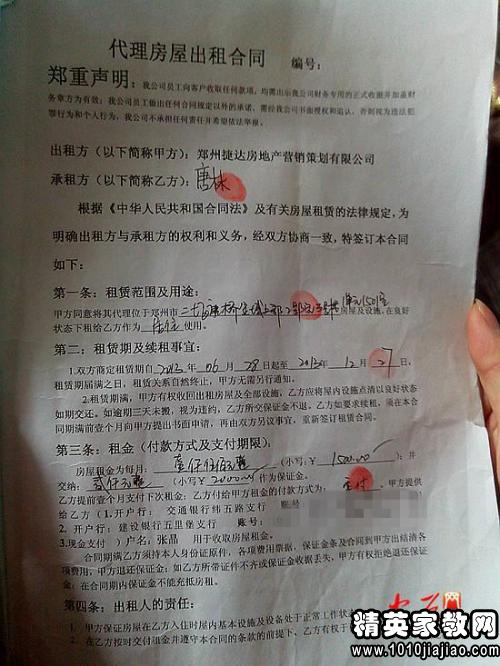 代理房屋出租合同 编号：
郑重声明：我公司员工向客户收取任何款项，均需出示我公司财务专用的正式收据并加盖财
务章方为有效；我公司员工做出任何合同规定以外的承诺，需经我公司书面授权和追认，否则视为违法犯
罪行为和个人行为，我公司不承担任何责任并希望依法举报。
出租方（以下简称甲方）：郑州捷达房地产营销策划有限公司
承租方（以下简称乙方）：唐林
根据《中华人民共和国合同法》及有关房屋租赁的法律规定，为
明确出租方与承租方的权利和义务，经双方协商一致，特签订本合同
如下：
第一条：租赁范围及用途：
甲方同意将其代理位于郑州市 二七 房屋及设施，在良好
状态下租给乙方作为 居住 使用。
第二：租赁期及续租事宜：
1.双方商定租赁期自2013年06月28日起至2013年12月27日，
租赁期届满之日，租赁关系自然终止，甲方无需另行通知。
2.租赁期满，甲方有权收回出租房屋及全部设施，乙方应将屋内设施点清以良好状态
如期交还。如逾期三天未搬，视为违约，乙方所交保证金不退。乙方如要求续租，须在本合
同期满前壹个月向甲方提出书面申请，再由双方另议事宜，重新签订租赁合同。
第三条：租金（付款方式及支付期限）：
房屋租金为每月：壹仟伍佰元整（小写：￥1500.00）；并
交纳：元整（小写￥）作为保证金。
乙方提前壹个月支付下次租金；乙方付给甲方租金的付款方式为：付，甲方提供
给乙方（1.开户行： 交通银行纬五路支行 账号
2.开户行：建设银行五里堡支行 账号：
3.现金支付）户名：张晶 用于收取房屋租金。
合同期满乙方须持本人身份证原件、各项费用票据、保证金条及合同到甲方出结清各
项费用，甲方退还保证金；如乙方所带证件不齐或保证金收据丢失，甲方有权拒绝退还保证
金；在合同期内保证金不能充抵房租。
第四条：出租人的责任：
1.甲方保证房屋在乙方入住时屋内基本设施及设备处于正常工作状态
2.在乙方按时交付租金并遵守本合同的条款的前提下，乙方有权于
精英家教网
www.1010jiajiao.com